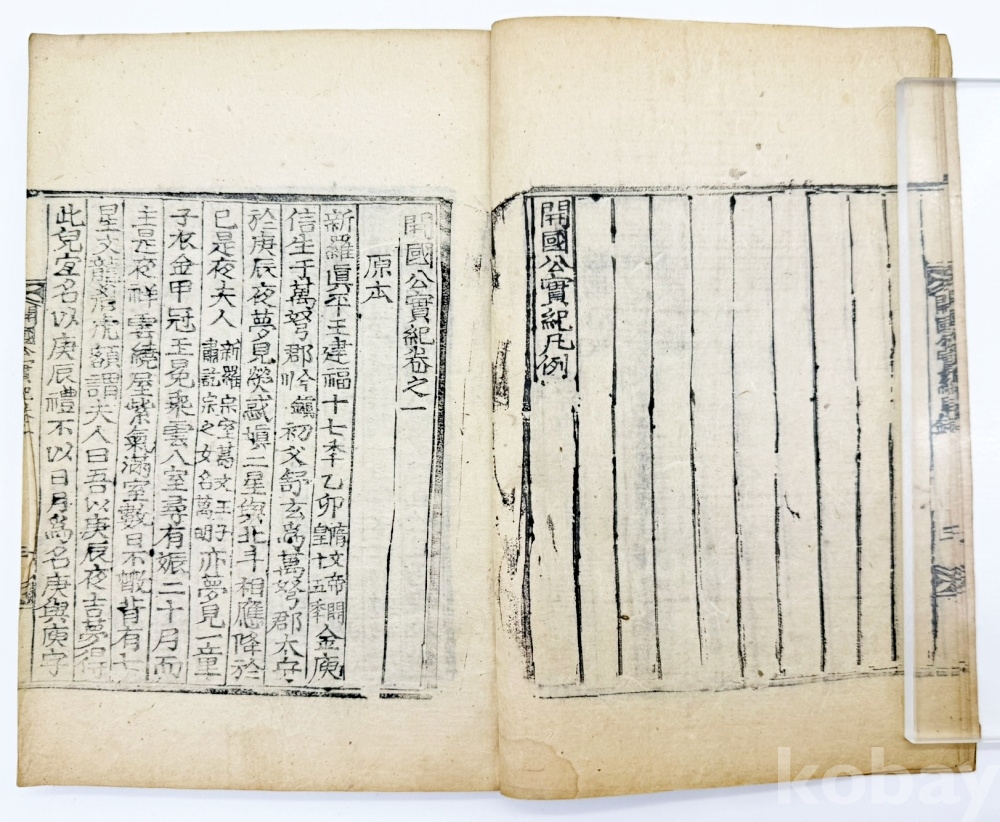 開國公實紀目錄
三
開國公實紀凡例
開國公實紀卷之一
原本
新羅眞平王建福十七季乙卯隋文帝開皇十五季金庾
信生于萬弩郡今鎭初父舒玄爲萬弩郡太守
於庚辰夜夢見熒惑塡二星與北斗相應降於
已是夜夫人新羅宗室葛文王子肅訖宗之女名萬明亦夢見一童
子衣金甲冠玉冕乘雲入室尋有娠二十月而
生是夜祥雲繞屋紫氣滿室數日不散背有七
星文虎額謂夫人曰吾以庚辰夜吉夢得
此兒宜名以庚辰禮不以日月爲名庚與庾字
kobay